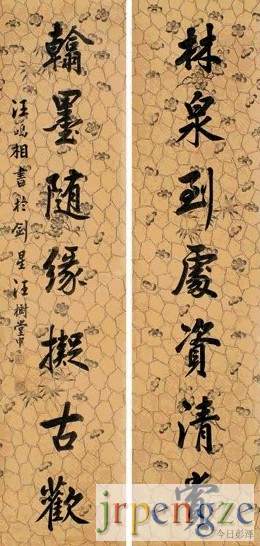 林泉到處資清賞
翰墨隨緣擬古歡
汪鳴相書於劍星汪樹堂中
jrpengze
今日彭泽